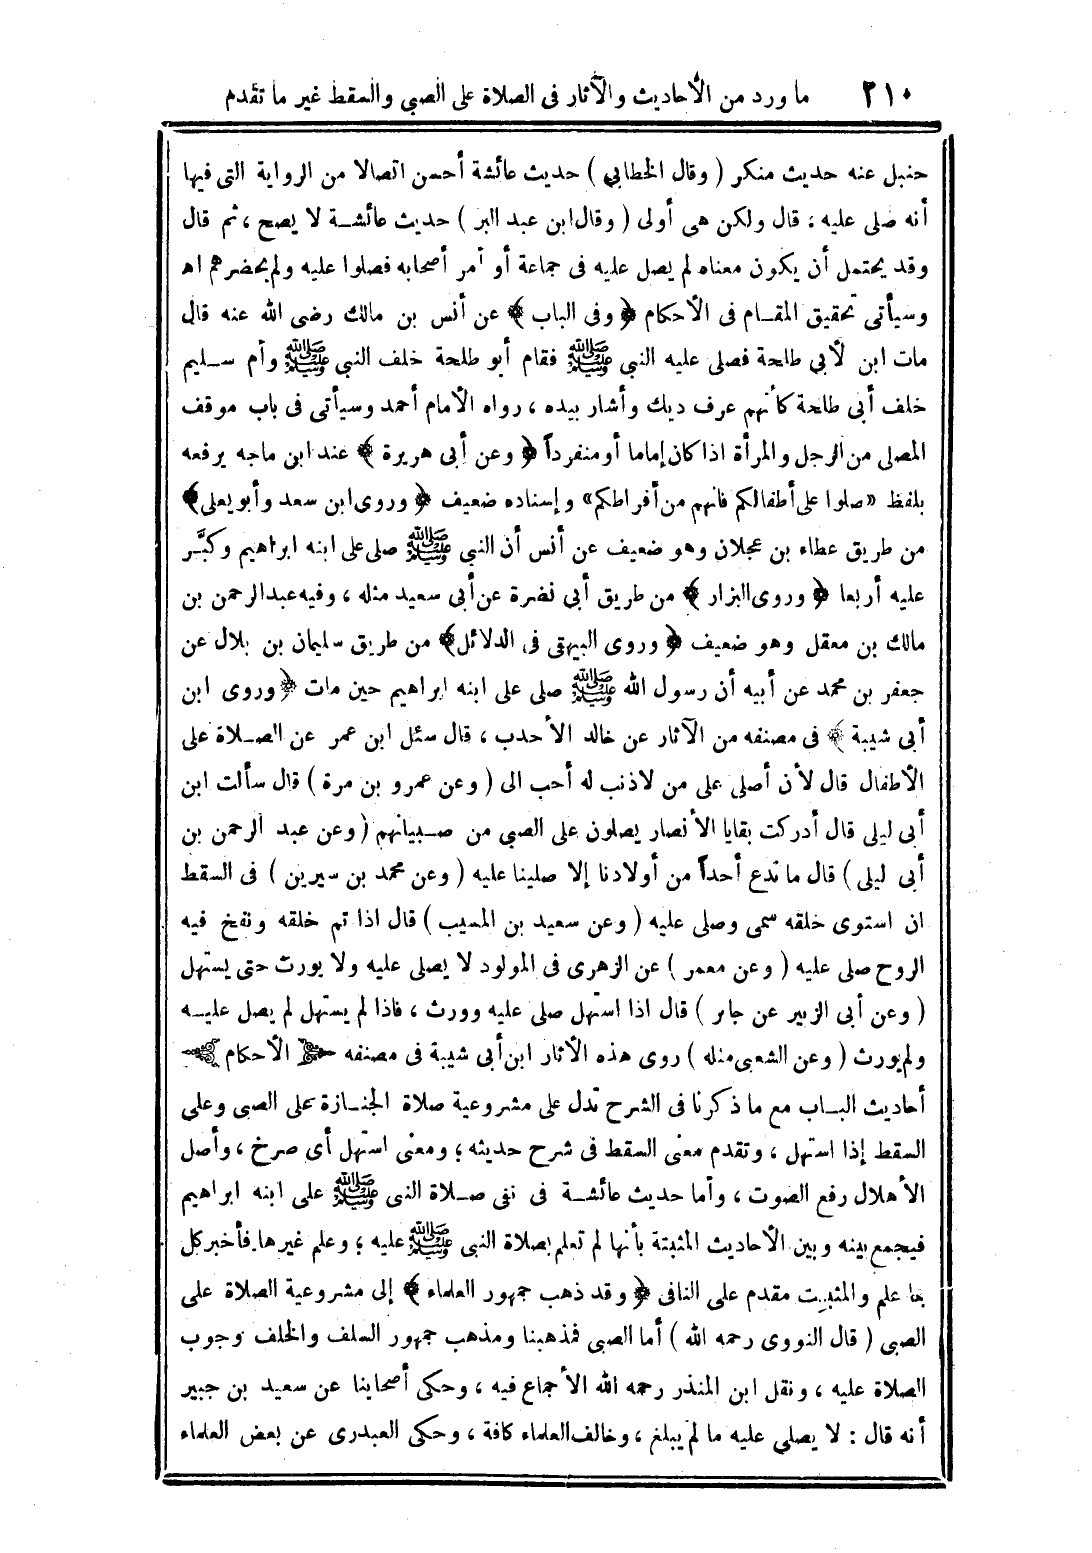 ٢١٠ ما ورد من الأحاديث والآثار فى الصلاة على الصبي والسقط غير ما تقدم
حنبل عنه حديث منكر ( وقال الخطابي ) حديث عائشة أحسن اتصالا من الرواية التى فيها
أنه صلى عليه ؛ قال ولكن هى أولى ( وقال ابن عبد البر ) حديث عائشة لا يصح ، ثم قال
وقد يحتمل أن يكون معناه لم يصل عليه فى جماعة أو أمر أصحابه فصلوا عليه ولم يحضرهم اه
وسيأتى تحقيق المقام فى الأحكام ﴿ وفى الباب ﴾ عن أنس بن مالك رضى الله عنه قال
مات ابن لأبي طلحة فصلى عليه النبي ﷺ فقام أبو طلحة خلف النبي ﷺ وأم سليم
خلف أبى طلحة كأنهم عرف ديك وأشار بيده ، رواه الأمام أحمد وسيأتى فى باب موقف
المصلى من الرجل والمرأة اذا كان إماما أو منفرداً ﴿ وعن أبى هريرة ﴾ عند ابن ماجه يرفعه
بلفظ «صلوا على أطفالكم فانهم من أفراطكم» وإسناده ضعيف ﴿ وروى ابن سعد وأبو يعلى ﴾
من طريق عطاء بن عجلان وهو ضعيف عن أنس أن النبي ﷺ صلى على ابنه ابراهيم وكبَّر
عليه أربعا ﴿ وروى البزار ﴾ من طريق أبي نضرة عن أبى سعيد مثله ، وفيه عبد الرحمن بن
مالك بن معقل وهو ضعيف ﴿ وروى البيهقى فى الدلائل ﴾ من طريق سليمان بن بلال عن
جعفر بن محمد عن أبيه أن رسول الله ﷺ صلى على ابنه ابراهيم حين مات ﴿ وروى ابن
أبى شيبة ﴾ فى مصنفه من الآثار عن خالد الأحدب ، قال سئل ابن عمر عن الصلاة على
الأطفال قال لأن أصلى على من لاذنب له أحب الى ( وعن عمرو بن مرة ) قال سألت ابن
أبى ليلى قال أدركت بقايا الأنصار يصلون على الصبي من صبيانهم ( وعن عبد الرحمن بن
أبى ليلى ) قال ما ندع أحداً من أولادنا إلا صلينا عليه ( وعن محمد بن سيرين ) فى السقط
ان استوى خلقه سمى وصلى عليه ( وعن سعيد بن المسيب ) قال اذا تم خلقه ونفخ فيه
الروح صلى عليه ( وعن معمر ) عن الزهرى فى المولود لا يصلى عليه ولا يورث حتى يستهل
( وعن أبى الزبير عن جابر ) قال اذا استهل صلى عليه وورث ، فاذا لم يستهل لم يصل عليه
ولم يورث ( وعن الشعبى مثله ) روى هذه الأثار ابن أبى شيبة فى مصنفه الأحكام
أحاديث الباب مع ما ذكرنا فى الشرح تدل على مشروعية صلاة الجنازة على الصبى وعلى
السقط إذا استهل ، وتقدم معنى السقط فى شرح حديثه ؛ ومعنى استهل أى صرخ ، وأصل
الأهلال رفع الصوت ، وأما حديث عائشة فى نفى صلاة النبى ﷺ على ابنه ابراهيم
فيجمع بينه وبين الأحاديث المثبتة بأنها لم تعلم بصلاة النبى ﷺ عليه ؛ وعلم غيرها فأخبر كل
بما علم والمثبت مقدم على النافى ﴿ وقد ذهب جمهور العلماء ﴾ إلى مشروعية الصلاة على
الصبى ( قال النووى رحمه الله ) أما الصبى فمذهبنا ومذهب جمهور السلف والخلف وجوب
الصلاة عليه ، ونقل ابن المنذر رحمه الله الأجماع فيه ، وحكى أصحابنا عن سعيد بن جبير
أنه قال : لا يصلي عليه ما لم يبلغ ، وخالف العلماء كافة ، وحكى العبدرى عن بعض العلماء